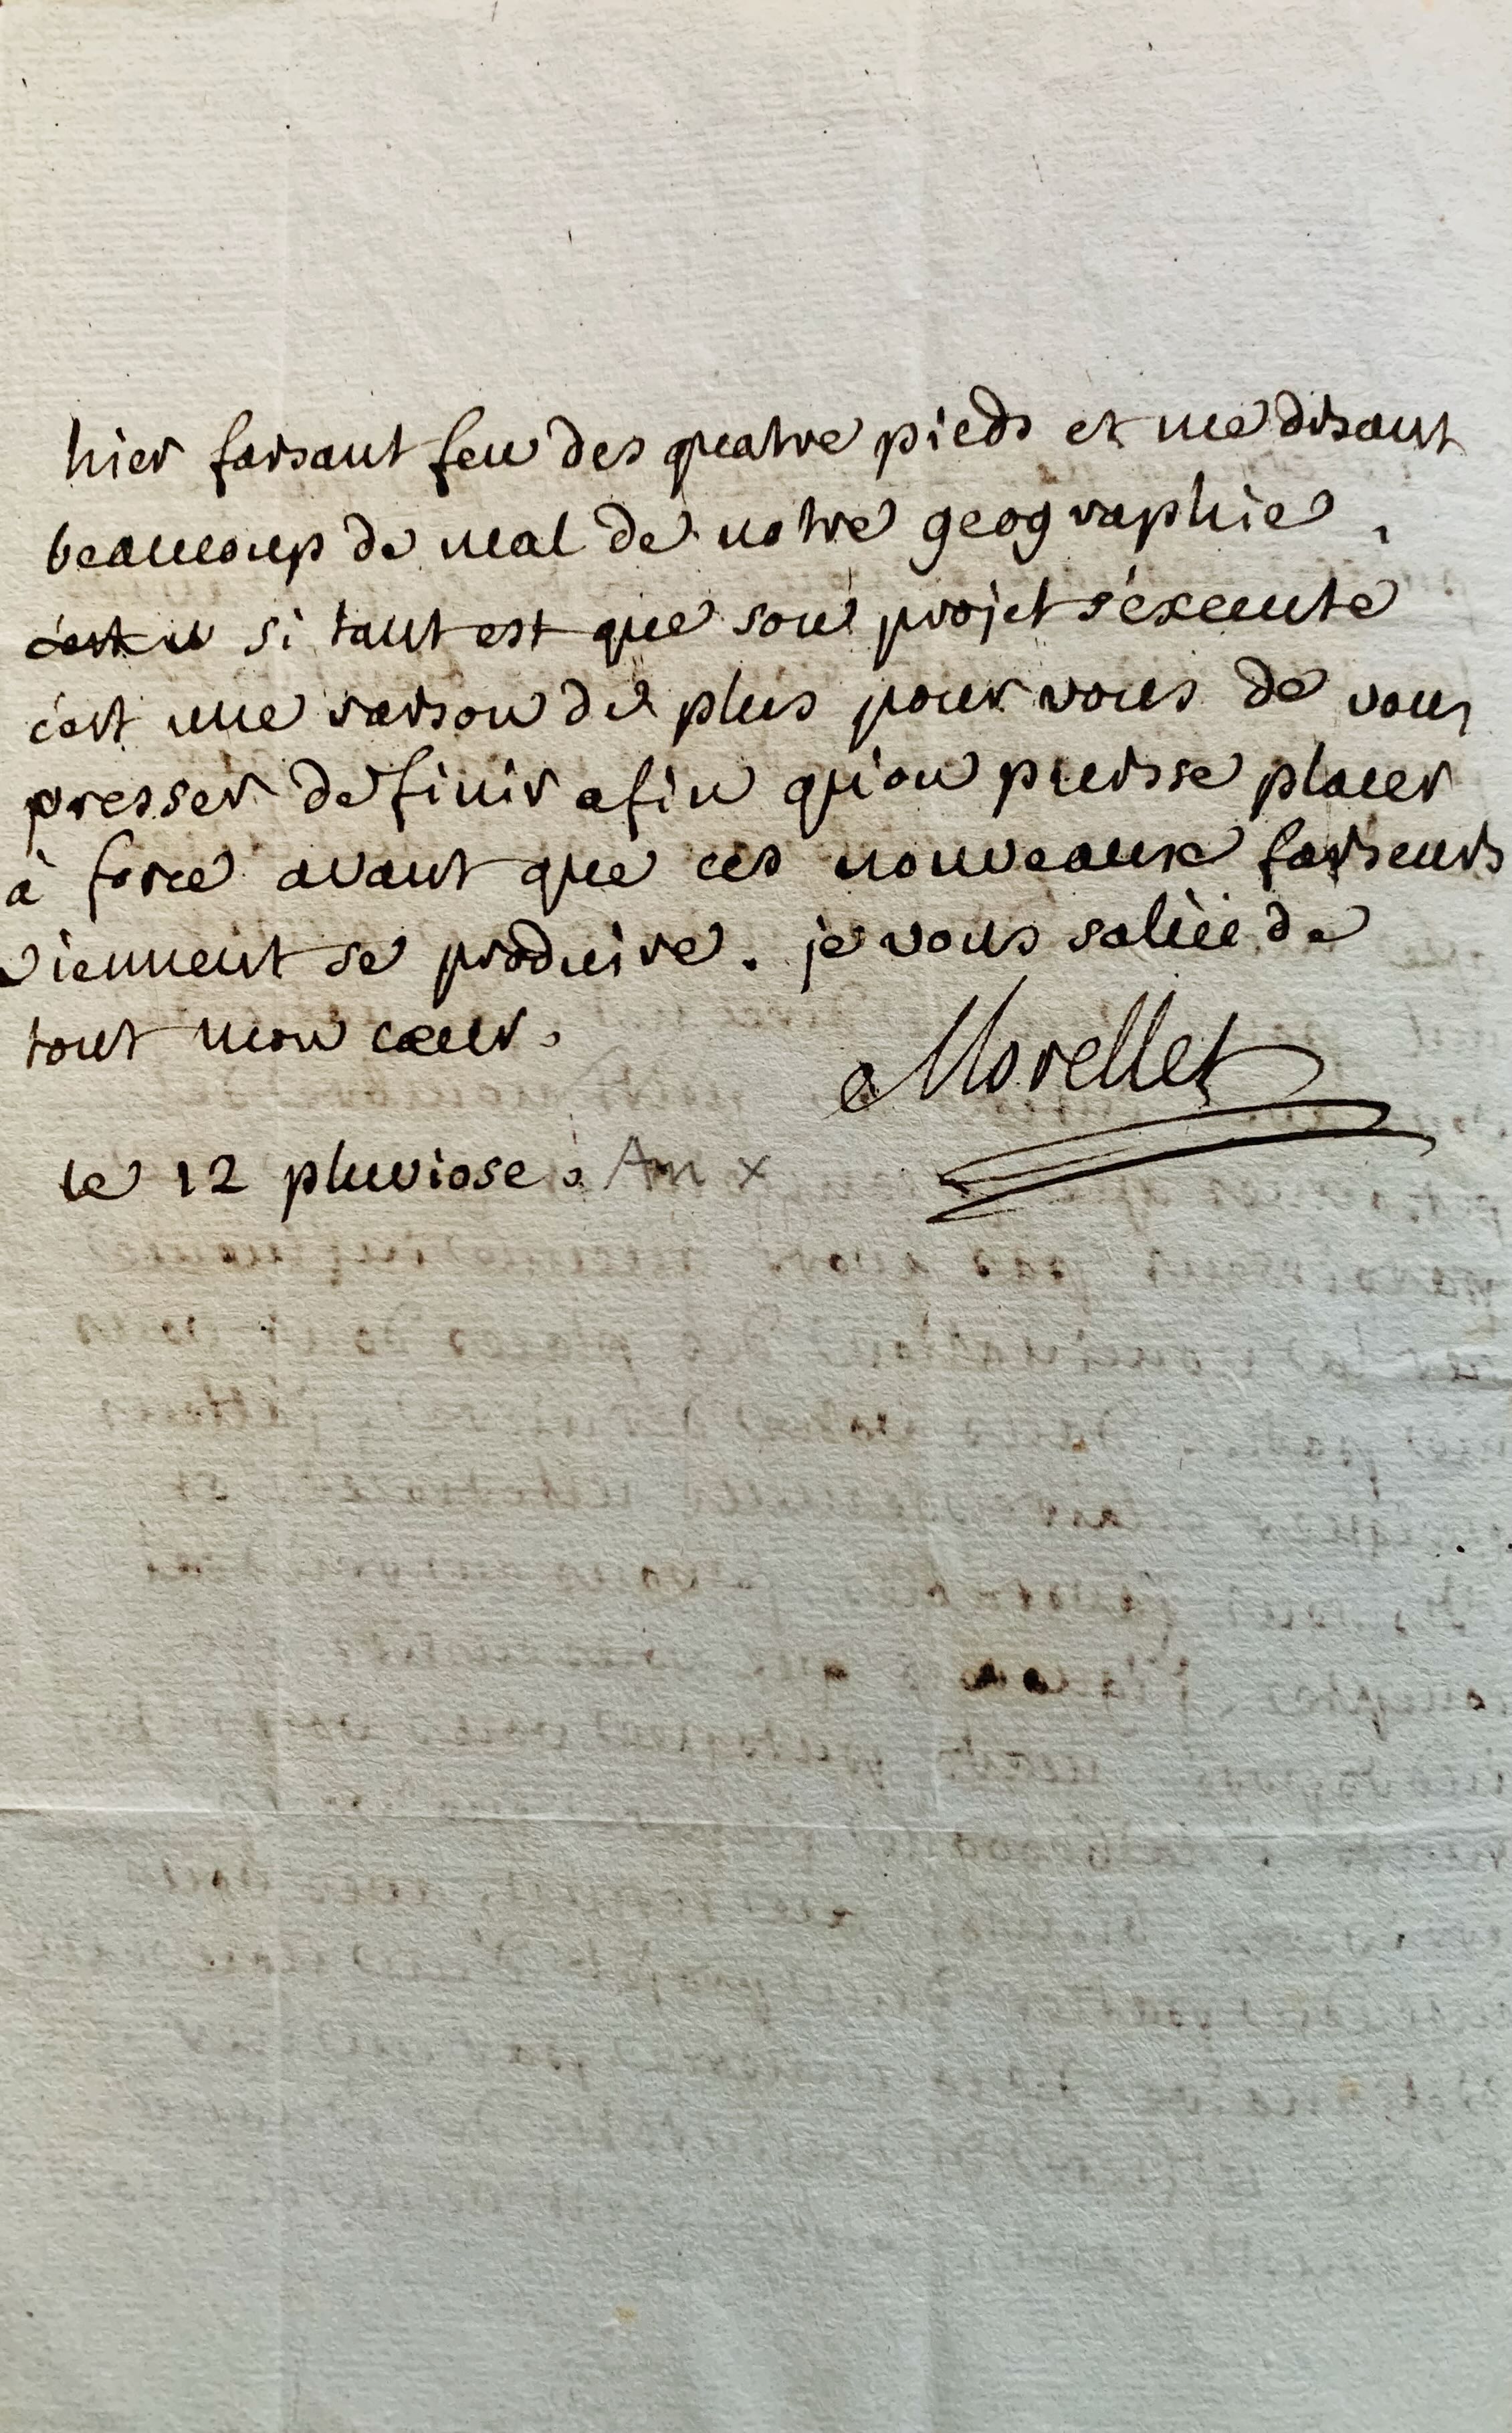 hier faisant feu des quatre pieds et me disant
beaucoup de mal de notre geographie,
si tant est que son projet s'execute
c'est une raison de plus pour vous de vous
presser de finir afin qu'on puisse placer
à force avant que ces nouveaux faiseurs
viennent se produire. je vous salüe de
tout mon cœur.
Morellet
le 12 pluviose. An X